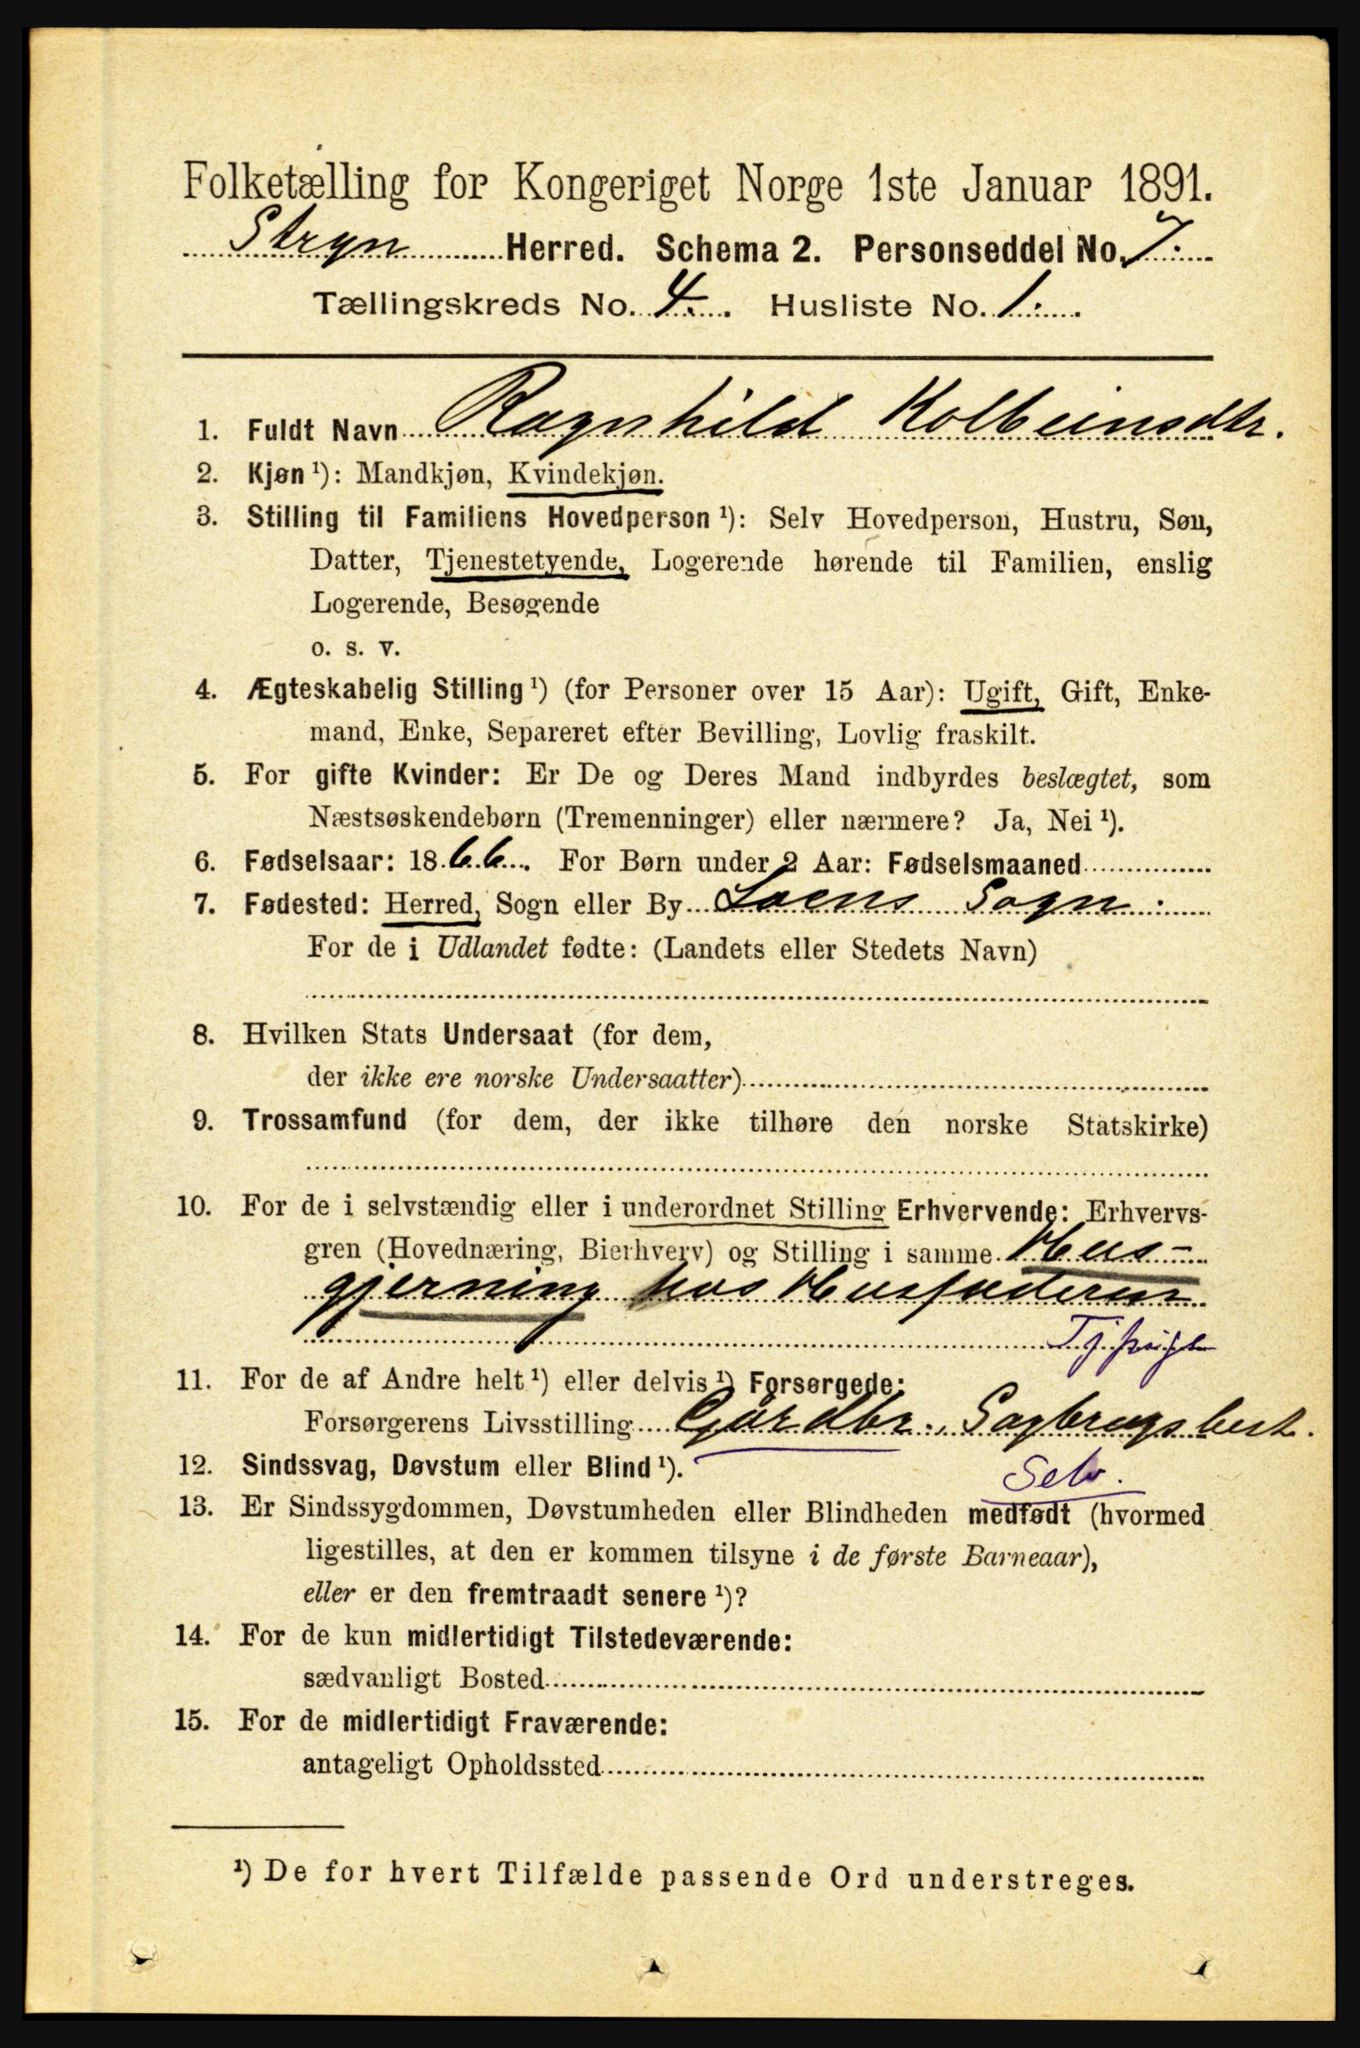 Folketælling for Kongeriget Norge 1ste Januar 1891.
Stryn Herred. Schema 2. Personseddel No. 7.
Tællingskreds No. 4. Husliste No. 1.
1. Fuldt Navn Ragnhild Kolbeinsdtr.
2. Kjøn ¹): Mandkjøn, Kvindekjøn.
3. Stilling til Familiens Hovedperson ¹): Selv Hovedperson, Hustru, Søn,
Datter, Tjenestetyende, Logerende hørende til Familien, enslig
Logerende, Besøgende
o. s. v.
4. Ægteskabelig Stilling ¹) (for Personer over 15 Aar): Ugift, Gift, Enke-
mand, Enke, Separeret efter Bevilling, Lovlig fraskilt.
5. For gifte Kvinder: Er De og Deres Mand indbyrdes beslægtet, som
Næstsøskendebørn (Tremenninger) eller nærmere? Ja, Nei ¹).
6. Fødselsaar: 1866. For Børn under 2 Aar: Fødselsmaaned
7. Fødested: Herred, Sogn eller By Loens Sogn.
For de i Udlandet fødte: (Landets eller Stedets Navn)
8. Hvilken Stats Undersaat (for dem,
der ikke ere norske Undersaatter)
9. Trossamfund (for dem, der ikke tilhøre den norske Statskirke)
10. For de i selvstændig eller i underordnet Stilling Erhvervende: Erhvervs-
gren (Hovednæring, Bierhverv) og Stilling i samme Hus-
gjerning hos Husfaderen
Tj.pige
11. For de af Andre helt ¹) eller delvis ¹) Forsørgede:
Forsørgerens Livsstilling Gårdbr., Sagbrugsbest.
12. Sindssvag, Døvstum eller Blind ¹). Selv.
13. Er Sindssygdommen, Døvstumheden eller Blindheden medfødt (hvormed
ligestilles, at den er kommen tilsyne i de første Barneaar),
eller er den fremtraadt senere ¹)?
14. For de kun midlertidigt Tilstedeværende:
sædvanligt Bosted
15. For de midlertidigt Fraværende:
antageligt Opholdssted
¹) De for hvert Tilfælde passende Ord understreges.